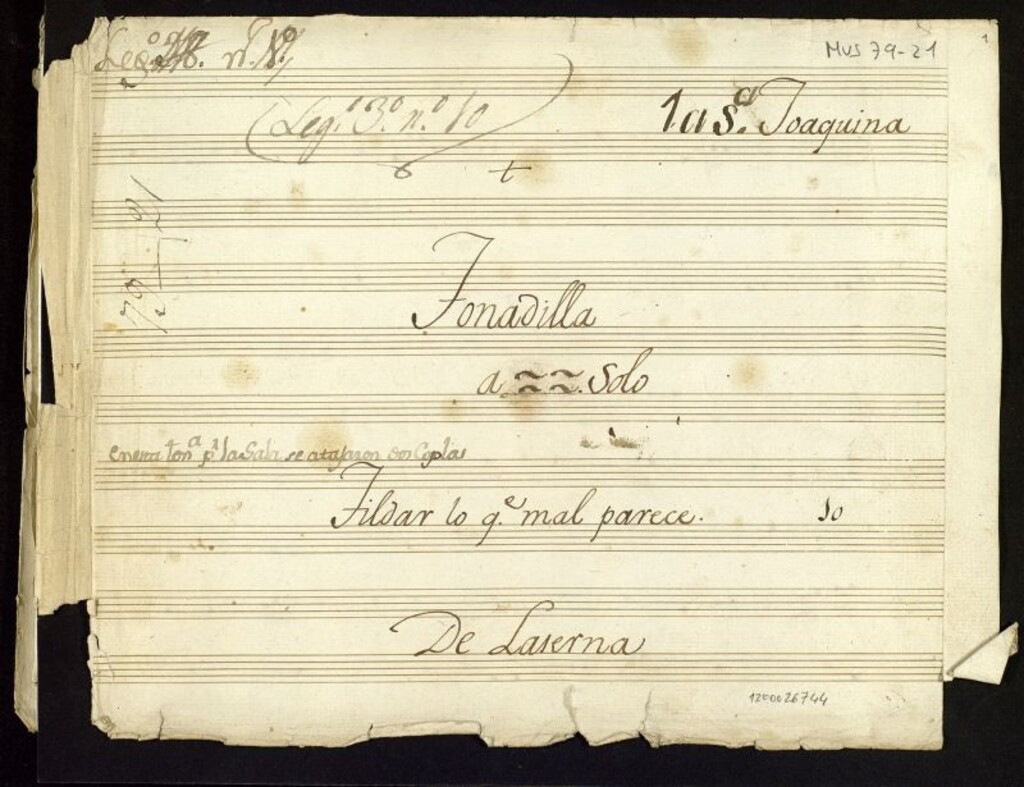 Leg.º nº
MUS 79-21
1
(Leg.º 3º n.º 10)
1a S.ª Joaquina
79-21
Tonadilla
a solo
en esta ton.ª pª la Sala se atajaron dos Coplas
Tildar lo q.e mal parece.
10
De Laserna
1200026744